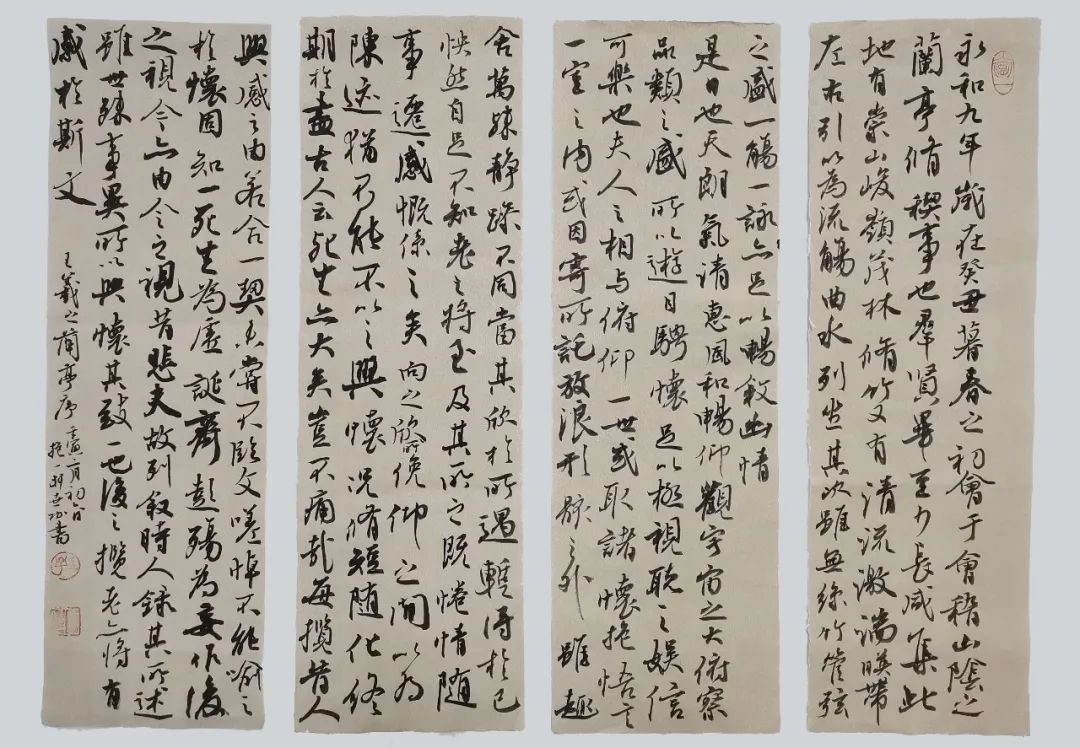 永和九年歲在癸丑暮春之初會于會稽山陰之
蘭亭脩禊事也羣賢畢至少長咸集此
地有崇山峻嶺茂林脩竹又有清流激湍暎帶
左右引以為流觴曲水列坐其次雖無絲竹管弦
之盛一觴一詠亦足以暢敘幽情
是日也天朗氣清惠風和暢仰觀宇宙之大俯察
品類之盛所以遊目騁懷足以極視聽之娛信
可樂也夫人之相与俯仰一世或取諸懷抱悟言
一室之內或因寄所託放浪形骸之外雖趣
舍萬殊靜躁不同當其欣於所遇輙得於己
怏然自足不知老之將至及其所之既惓情隨
事遷感慨係之矣向之所欣俛仰之間以為
陳迹猶不能不以之興懷況脩短隨化終
期於盡古人云死生亦大矣豈不痛哉每攬昔人
興感之由若合一契未嘗不臨文嗟悼不能喻之
於懷固知一死生為虛誕齊彭殤為妄作後
之視今亦由今之視昔悲夫故列敘時人錄其所述
雖世殊事異所以興懷其致一也後之攬者亦將有
感於斯文
王羲之蘭亭序
壬寅一月初
抱一軒書